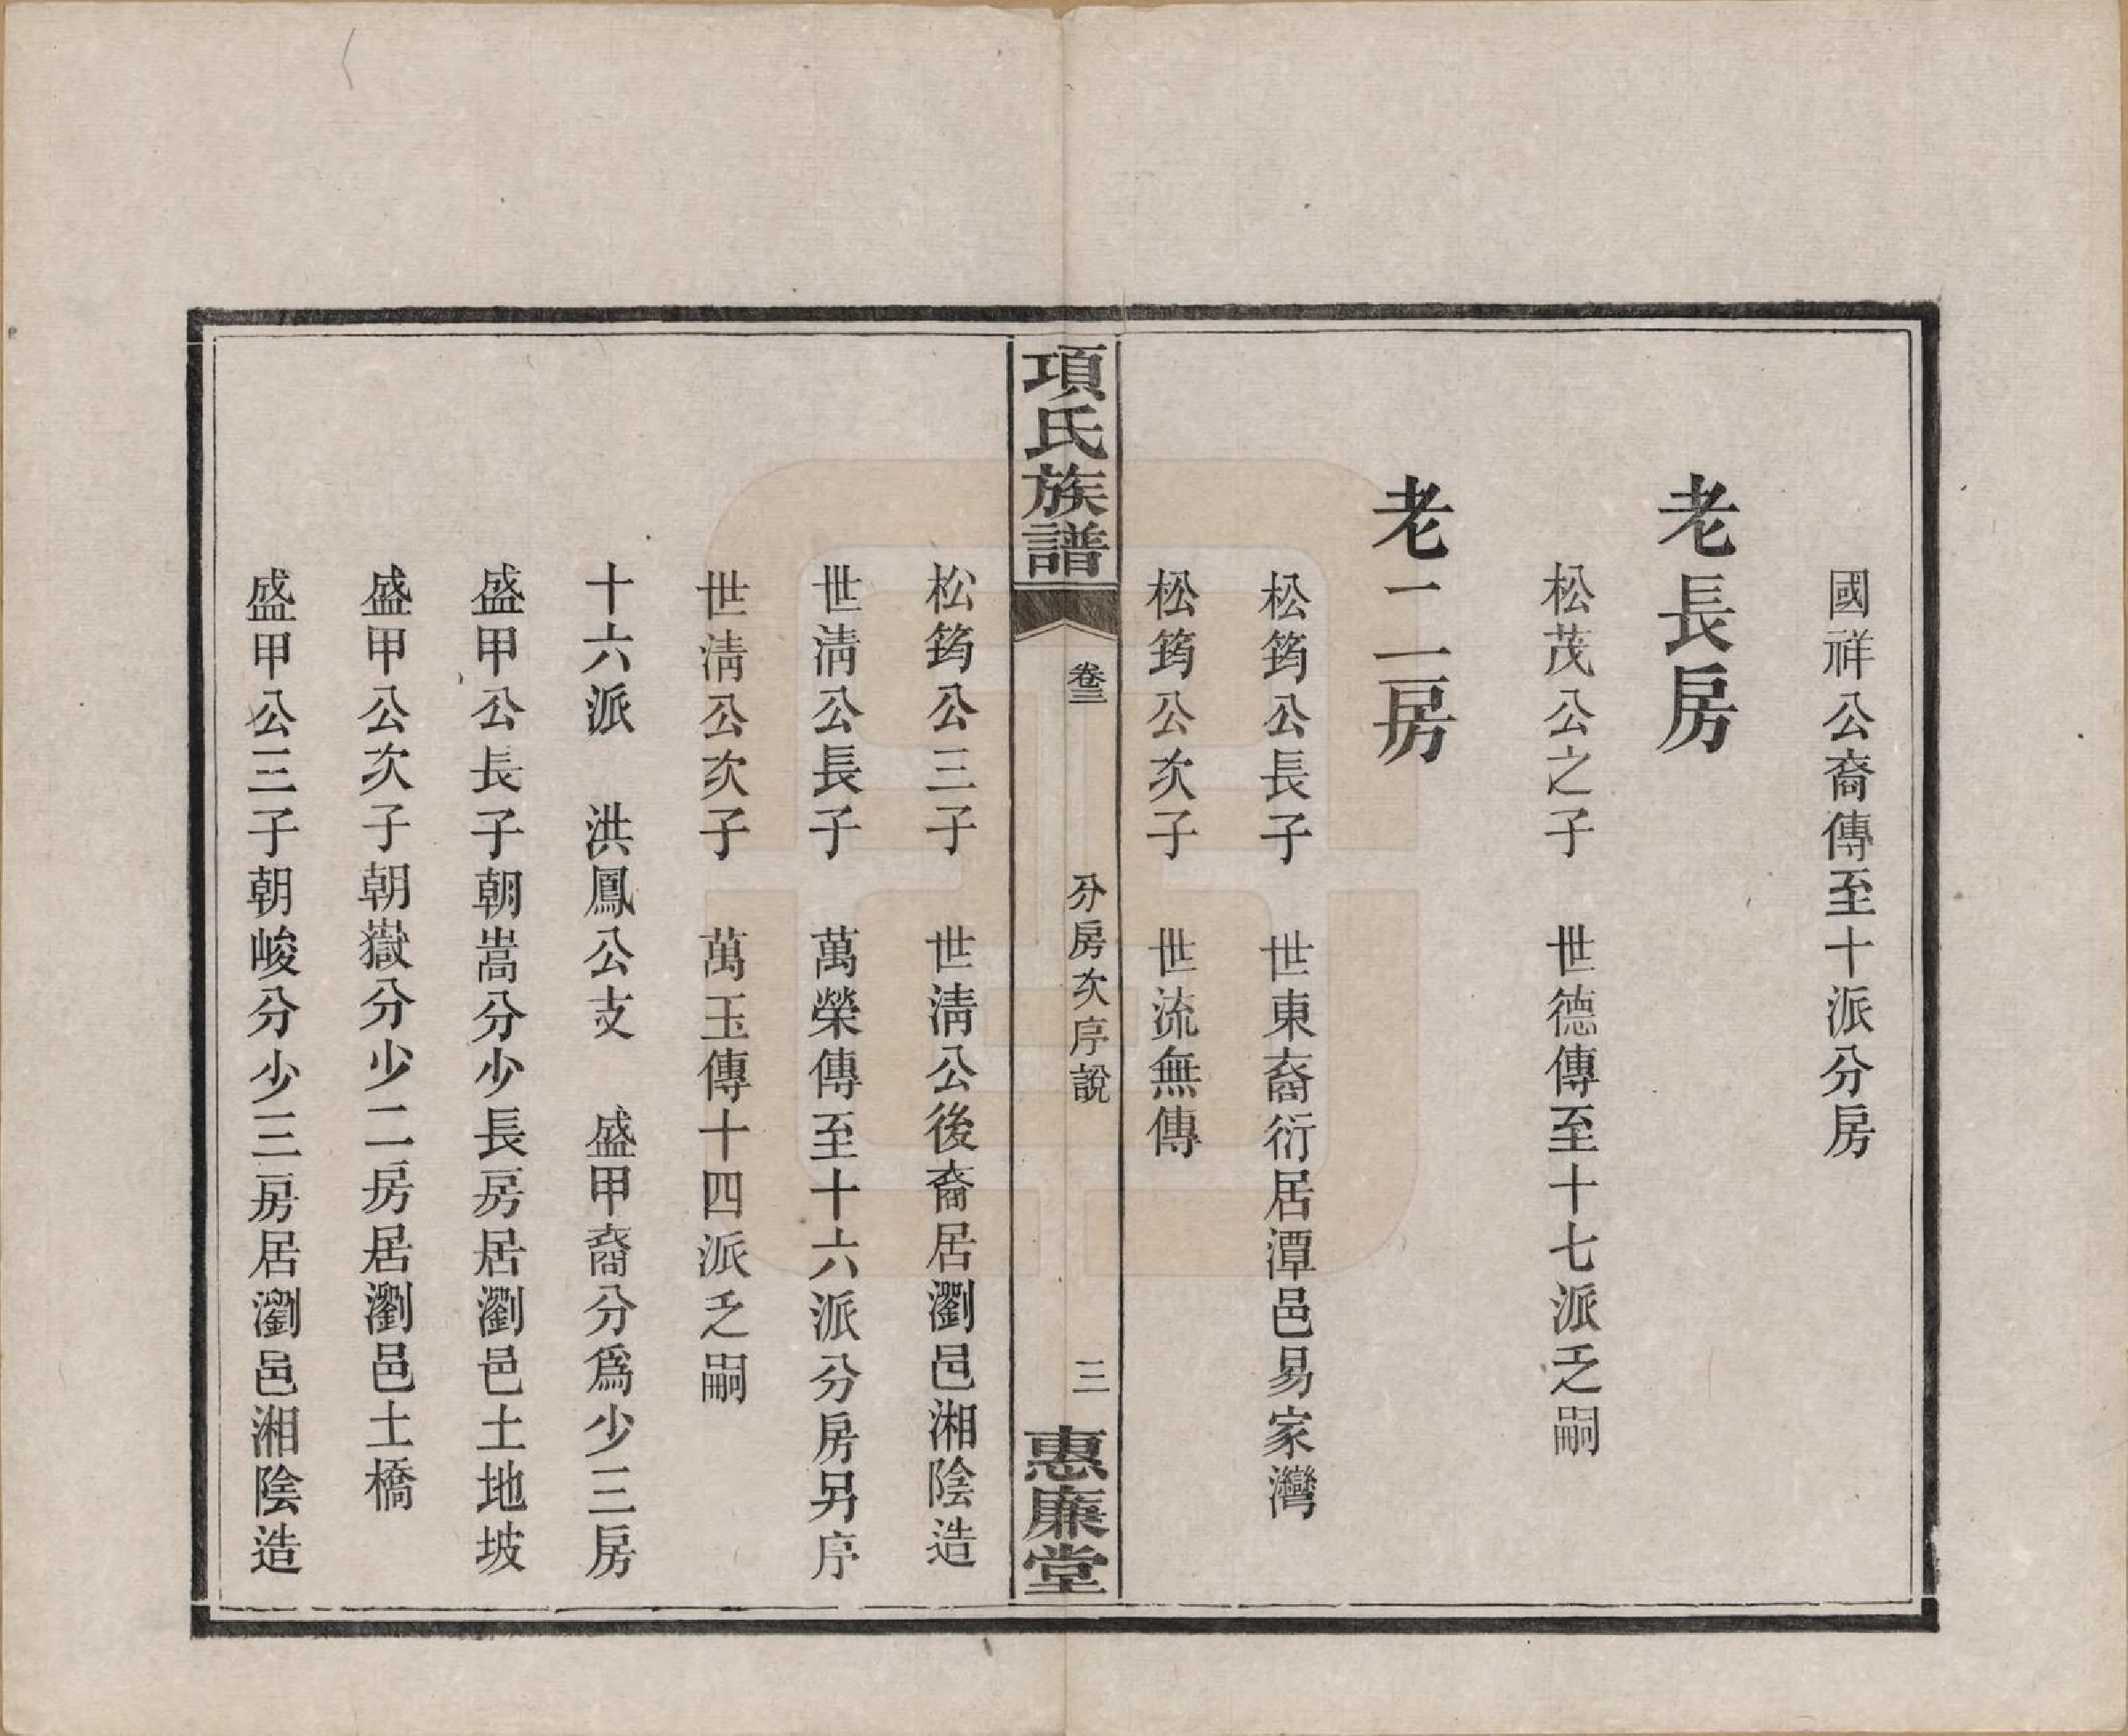 國祥公裔傳至十派分房
老長房
松茂公之子　世德傳至十七派乏嗣
老二房
松筠公長子　世東裔衍居潭邑易家灣
松筠公次子　世流無傳
項氏族譜
卷三
分房次序說
三
惠廉堂
松筠公三子　世淸公後裔居瀏邑湘陰造
世淸公長子　萬榮傳至十六派分房另序
世淸公次子　萬玉傳十四派乏嗣
十六派　洪鳳公支　盛甲裔分爲少三房
盛甲公長子朝嵩分少長房居瀏邑土地坡
盛甲公次子朝嶽分少二房居瀏邑土橋
盛甲公三子朝峻分少三房居瀏邑湘陰造